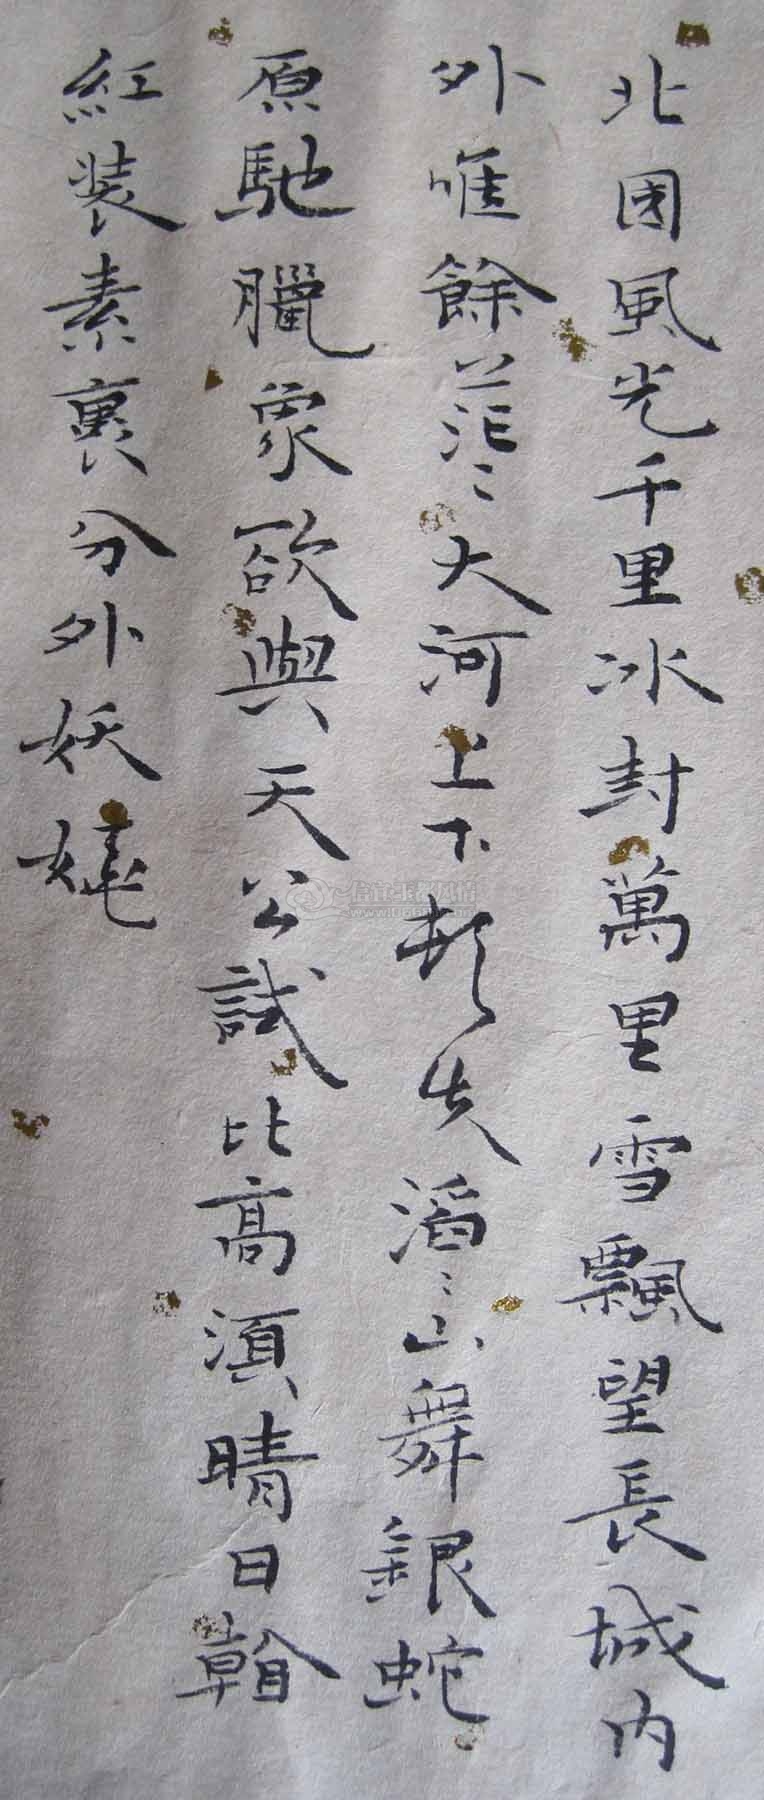 北国風光千里冰封萬里雪飄望長城内
外唯餘茫〻大河上下頓失滔〻山舞銀蛇
原馳臘象欲與天公試比高須晴日看
紅装素裹分外妖嬈